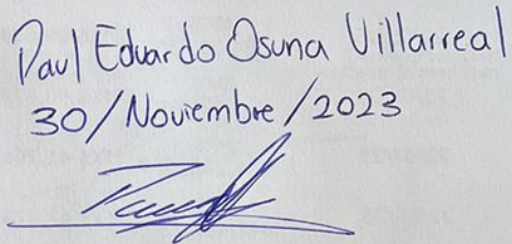 Paul Eduardo Osuna Villarreal
30/Noviembre/2023